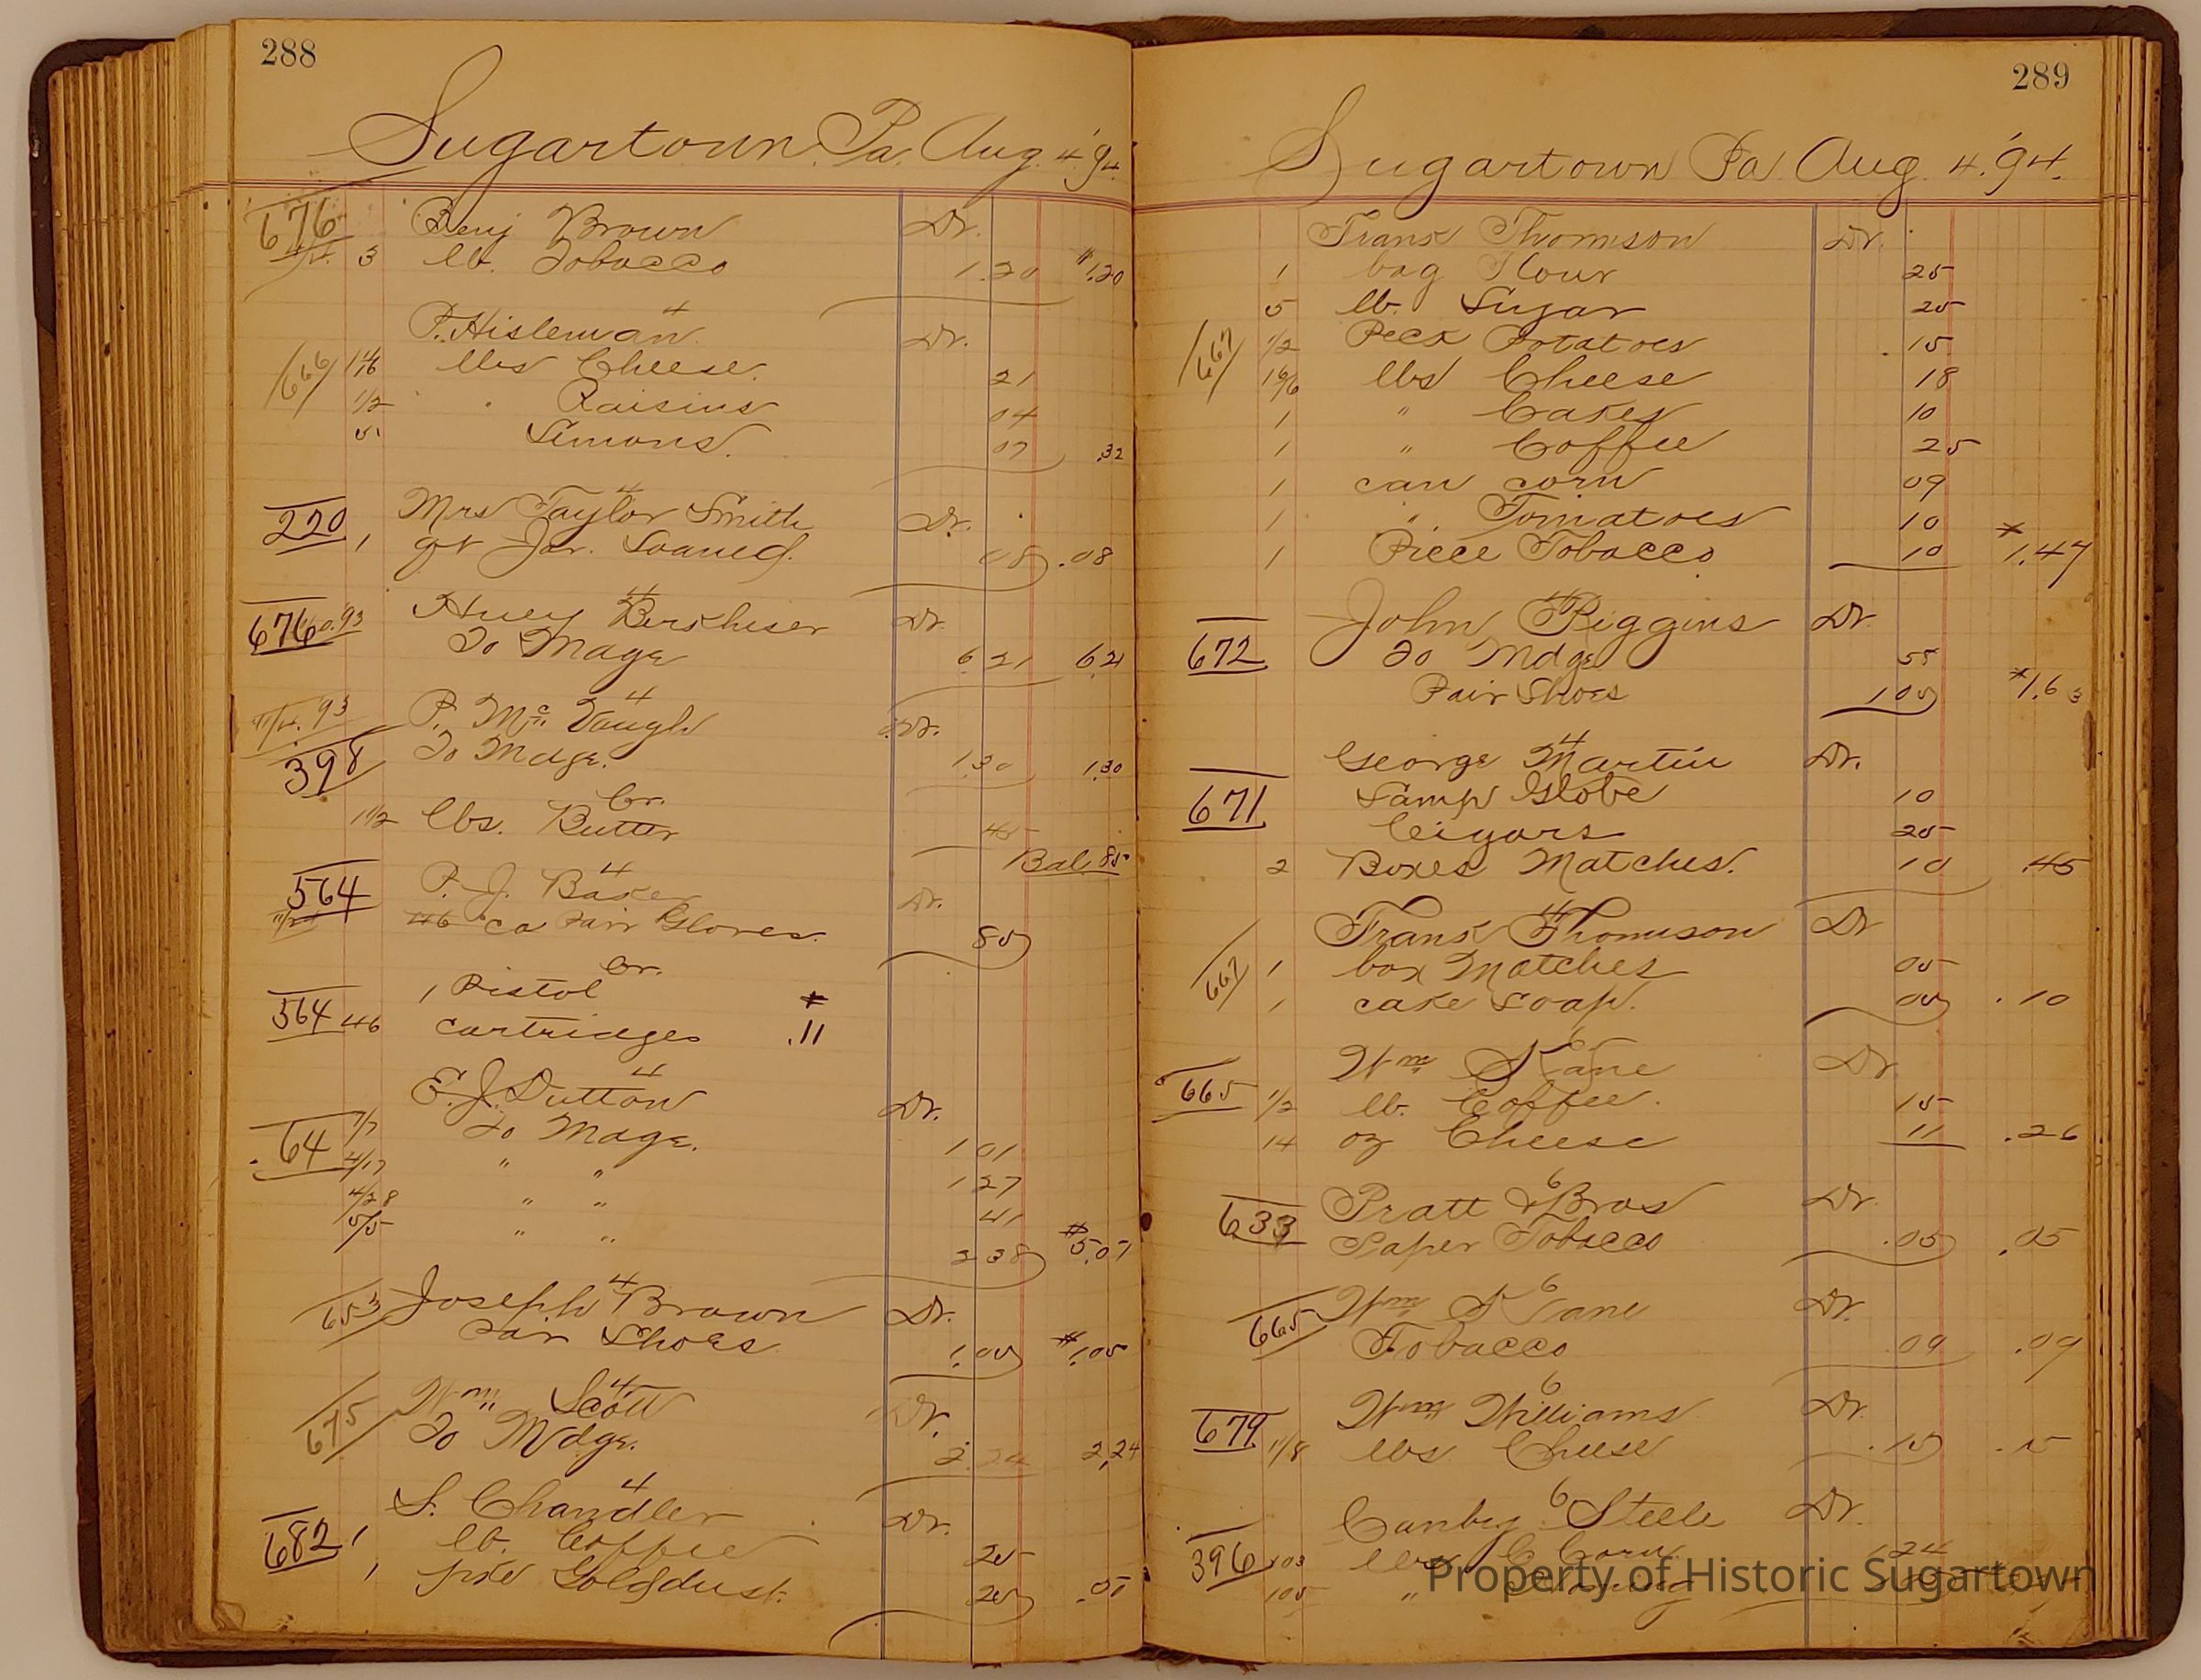 288
Sugartown Pa. Aug. 4. '94.
676 Benj Brown Dr.
3 lb. Tobacco 1.20 $1.20
4
P. Hisleman Dr.
666 lbs Cheese. 21
1/2 " Raisins 04
5 Limons. 07 .32
4
220 Mrs Taylor Smith Dr.
1 qt Jar. Loaned. 08 .08
4
676 Huey Berkheiser Dr.
To Mdge 6 21 6.21
4
11/14. 93 P. Mc Vaugh Dr.
398 To Mdge. 1 30 1.30
Cr.
1 1/2 lbs. Butter 45
Bal. 85
4
564 P. J. Baker Dr.
Pair Gloves. 85
Cr.
1 Pistol
564 46 cartridges .11
4
E. J. Dutton Dr.
64 To Mdge. 1 01
4/17 " " 1 27
4/28 " " 41
5/5 " " 2 38 $5.07
4
653 Joseph Brown Dr.
Pair Shoes 1.05 $1.05
4
675 Wm Scott Dr.
To Mdge. 2.24 2.24
4
S. Chandler Dr.
682 1 lb. Coffee 25
1 Golddust. 25
289
Sugartown Pa Aug 4. '94.
Frank Thomson Dr.
1 bag Flour 25
5 lb. Sugar 25
667 1/2 Peck Potatoes 15
lbs Cheese 18
1 " Cakes 10
1 " Coffee 25
1 can corn 09
1 " Tomatoes 10
1 Piece Tobacco 10 $1.47
4
John Riggins Dr
672 To Mdge 55
Pair Shoes 1 05 $1.63
4
George Martin Dr.
671 Lamp Globe 10
Cigars 25
2 Boxes Matches. 10 .45
4
Frank Thomson Dr
667 1 box Matches 05
1 cake soap. 05 .10
6
Wm Kane Dr
665 1/2 lb. Coffee. 15
14 oz Cheese 11 .26
6
633 Pratt & Bros Dr.
Paper Tobacco .05 .05
6
665 Wm Kane Dr.
Tobacco 09 .09
6
679 Wm Williams Dr.
1 1/8 lbs Cheese .15 .15
6
Canby Steele Dr.
396 103 lbs C. Corn 1 24
105 "
Property of Historic Sugartown